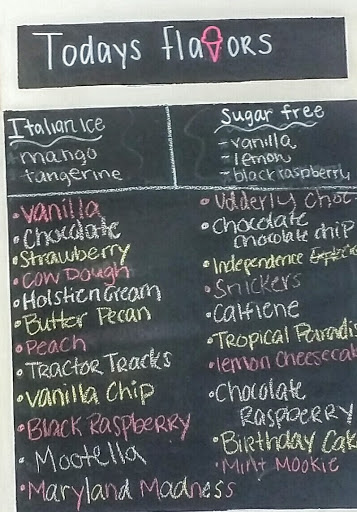 Todays Flavors
Italian Ice
-mango
tangerine
Sugar free
-vanilla
-lemon
-black raspberry
•Vanilla
•Chocolate
•Strawberry
•Cow Dough
•Holstien Cream
•Butter Pecan
•Peach
•Tractor Tracks
•Vanilla Chip
•Black Raspberry
•Mootella
•Maryland Madness
•Udderly Choc
•Chocolate
Chocolate chip
•Independence
•Snickers
•Calfiene
•Tropical Paradis
•lemon Cheesecak
•Chocolate
Raspberry
•Birthday Cak
•Mint Mookie